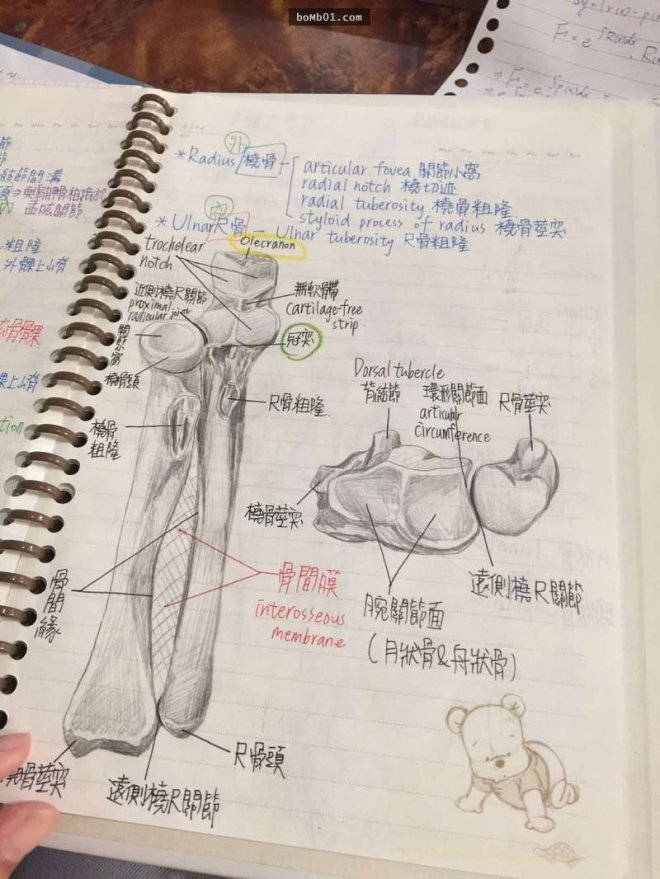 bomb01.com
外
*Radius 橈骨 - articular fovea 關節小窩
radial notch 橈切迹
radial tuberosity 橈骨粗隆
styloid process of radius 橈骨莖突
內
*Ulnar 尺骨 - Ulnar tuberosity 尺骨粗隆
Olecranon
trochelear
notch
近側橈尺關節
proximal
radioulnar joint
無軟骨帶
cartilage-free
strip.
冠突
橈骨頭
尺骨粗隆
橈骨
粗隆
Dorsal tubercle
背結節
環形關節面
articular
circumference
尺骨莖突
橈骨莖突
骨間膜
interosseous
membrane
骨間緣
腕關節面
(月狀骨&舟狀骨)
遠側橈尺關節
尺骨頭
骨莖突
遠側橈尺關節
節
節
節間溝
盂肱關節
粗隆
外髁上山脊
髁上山脊
tion